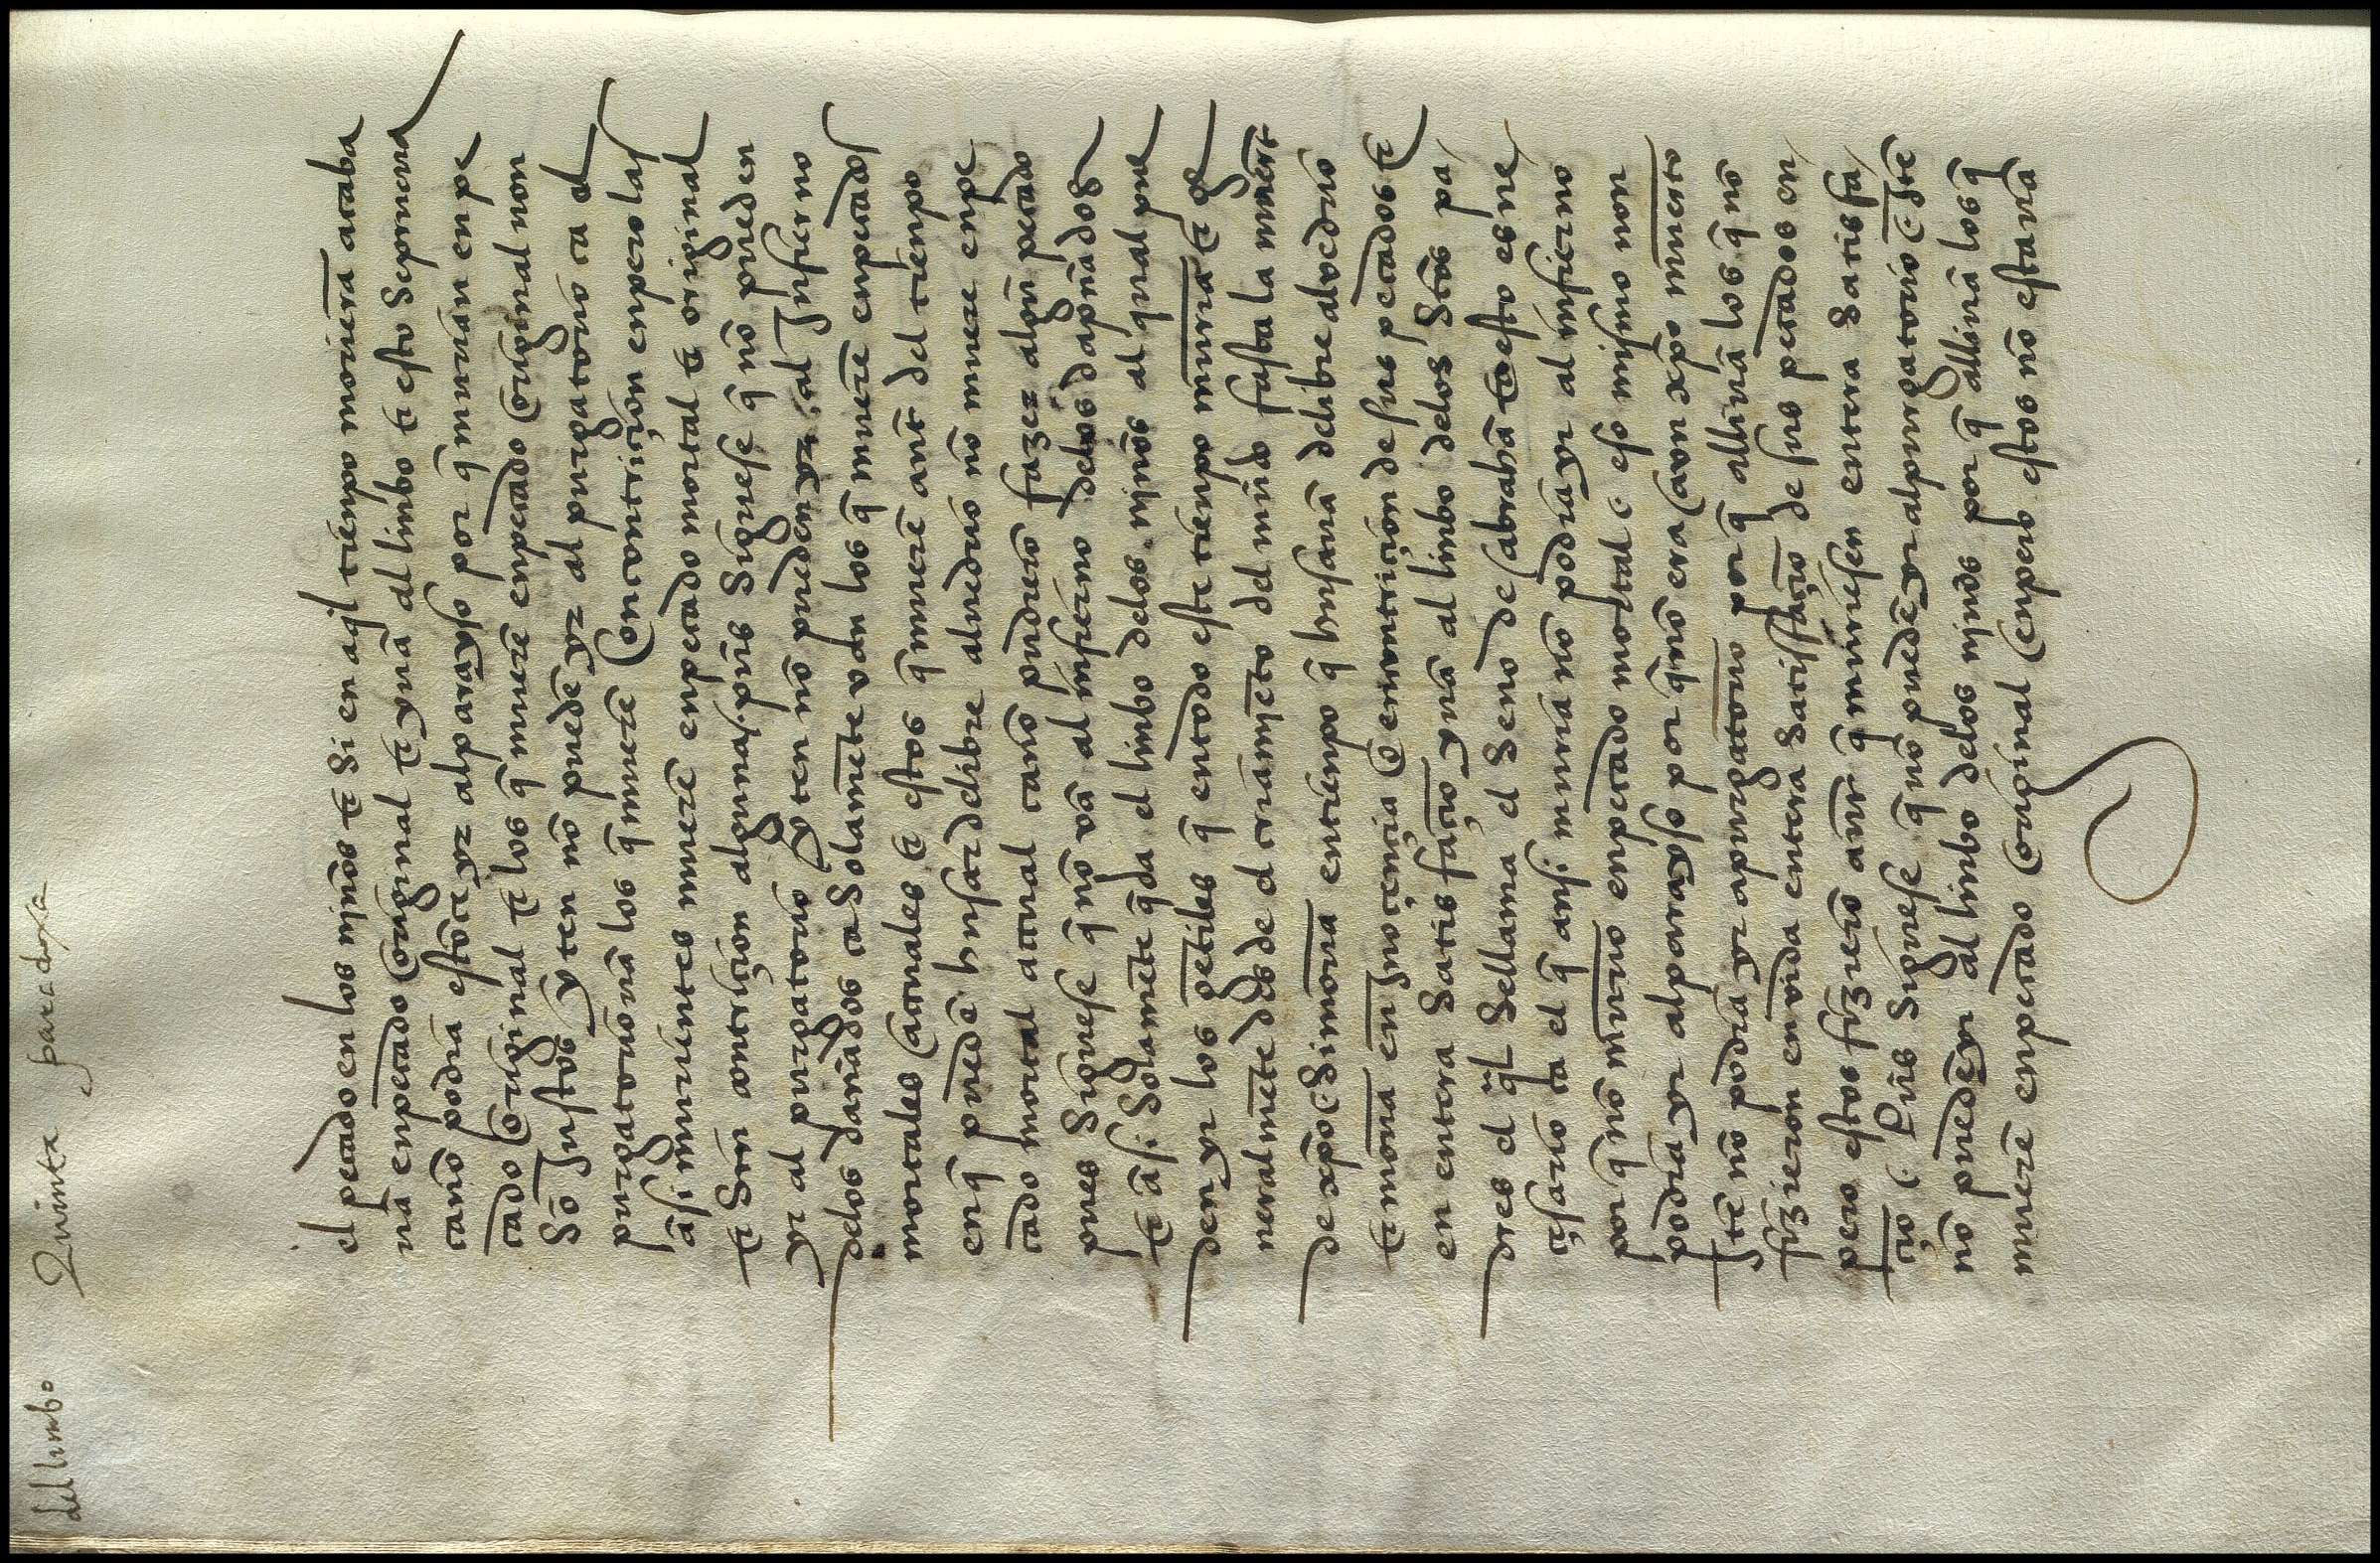 del limbo Quinta paradoxa
el pecado en los njños τ Si en aq̃l tienpo moriera acaba
uã en pecado Original τ yuã al limbo τ esto Se prueua
ca nõ podia estõçe yr al parayso por q̃ muriã en pe
cado Original τ los q̃ muerẽ en pecado Original non
Sõ Justos yten nõ puedẽ yr al purgatorio ca el
purgatorio nã los q̃ muerẽ Con contriçion enpero las
asi murientes muerẽ en pecado mortal τ original
τ Sin contriçion alguna. pues Siguese q̃ nõ pueden
yr al purgatorio yten nõ pueden yr al Jnfierno
delos dañados ca Solamẽte van los q̃ muerẽ en pecados
mortales Actuales τ estos q̃ muerẽ ant del tienpo
en q̃ puedẽ husar delibre aluedrio nõ muere en pe
cado mortal actual ca nõ pudierõ fazer algũ pecado
pues Siguese q̃ nõ vã al infierno delos dapñados
τ asi Solamẽte q̃da el limbo delos njños al qual pue
den yr los gẽtiles q̃ en todo este tienpo murierã τ ge
neralmẽte desde el criamjẽto del mũdo fasta la muert
de xp̃o Si moria en tienpo q̃ husauã delibre aluedrio
τ moriã en Jnoçençia o en contriçion de sus pecados τ
en entera Satisfaçiõ yuã al limbo delos Sãtos pa
dres el q̃l Se llama el Seno de abrahã τ esto es ne
çesario ca el q̃ ansi muria nõ podia yr al infierno
por q̃ nõ murio en pecado mortal eso mismo non
podia yr al parayso por q̃ nõ era aun xp̃o muerto
Jtẽ nõ podia yr a purgatorio por q̃ alli uã los q̃ nõ
fizieron en vida entera Satisfaçiõ de sus pecados en
pero estos fizierõ ant q̃ muriesen entera Satisfa
çiõ Pues Siguese q̃ nõ puedẽ yr al purgatorio Jtẽ
nõ puedẽ yr al linbo delos njños por q̃ alli uã los q̃
muerẽ en pecado Original Enpero estos nõ estauã